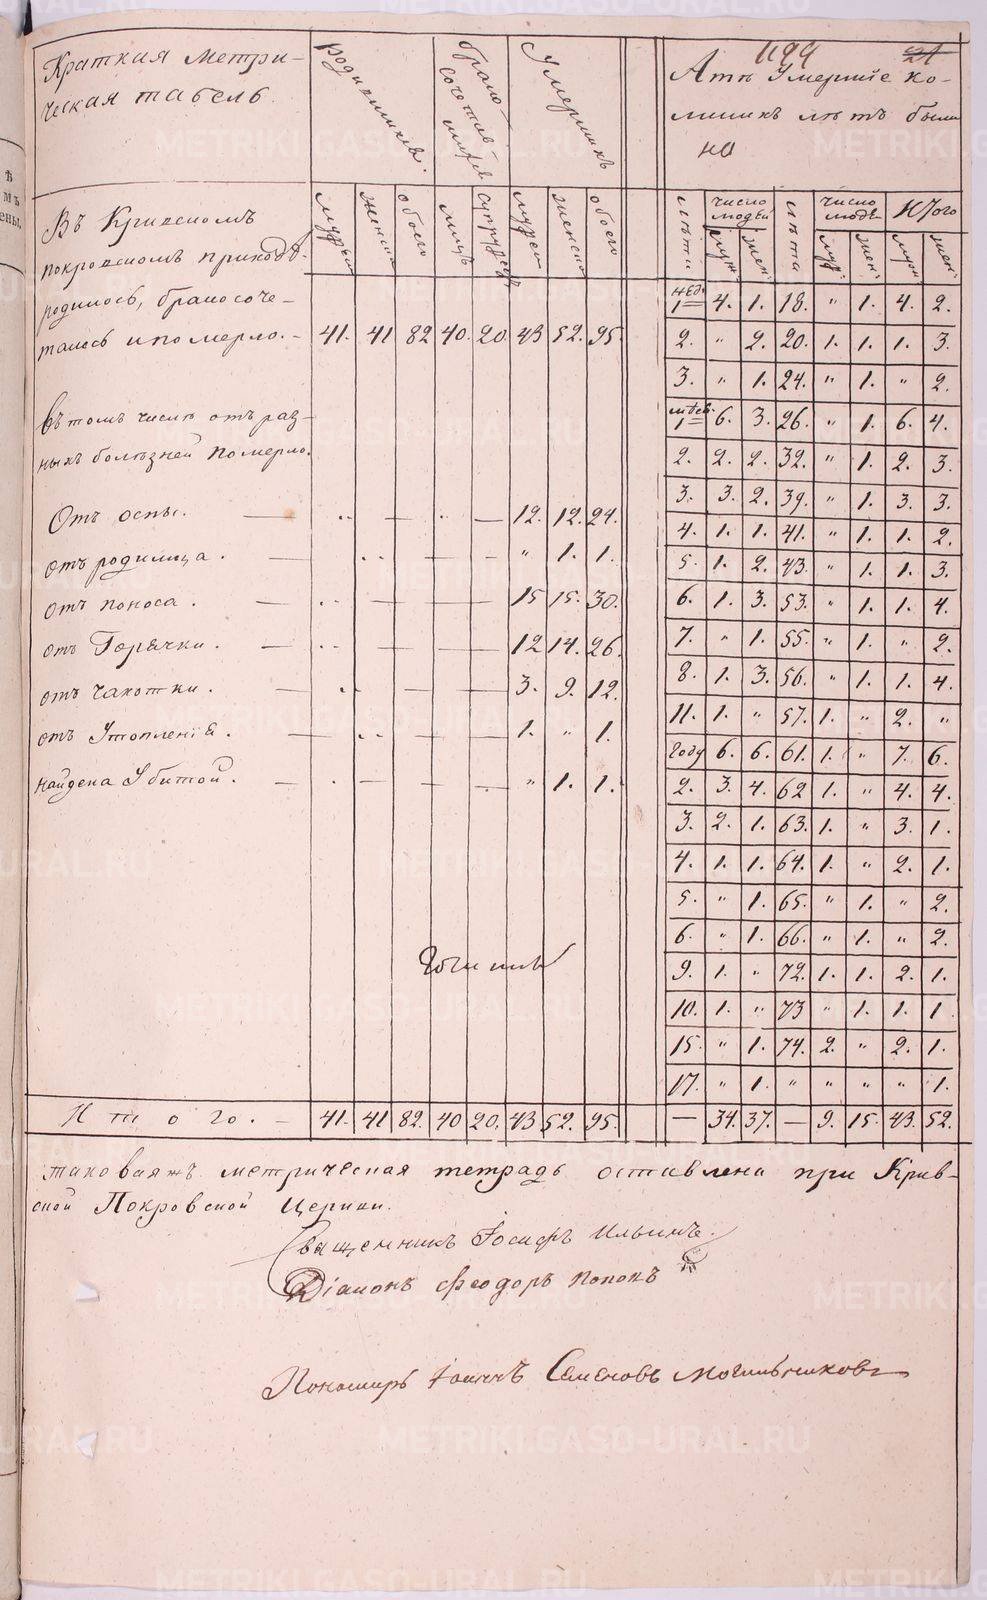 1199 21
Краткая метри-
ческая табель.
родившихся.
брако-
сочетав-
шихся
Умершихъ
А тѣ Умершіе ко-
ликихъ лѣтъ были
но
мужескъ
женскъ
обоего
лицъ
супружествъ
мужескъ
женскъ
обоего
лѣта
число людей
муж:
жен:
лѣта
число людей
муж:
жен:
Итого
муж:
жен:
Въ Кривскомъ
покровскомъ приходѣ
родилось, бракосоче-
талось и померло. - 41. 41 82 40. 20. 43 52. 95.
въ томъ числѣ отъ раз-
ныхъ болѣзней померло.
Отъ оспы. — 12. 12. 24.
отъ родимца. — " 1. 1.
отъ поноса. — 15 15. 30.
отъ Горячки. — 12 14. 26.
отъ чахотки. — 3. 9. 12.
отъ Утопленія. — 1. " 1.
найдена Убитой. — " 1. 1.
нед. 1 4. 1. 18. " 1. 4. 2.
2. " 2. 20. 1. 1. 1. 3.
3. " 1. 24. " 1. " 2.
мѣсяц. 1 6. 3. 26. " 1. 6. 4.
2. 2. 2. 32. " 1. 2. 3.
3. 3. 2. 39. " 1. 3. 3.
4. 1. 1. 41. " 1. 1. 2.
5. 1. 2. 43. " 1. 1. 3.
6. 1. 3. 53. " 1. 1. 4.
7. " 1. 55. " 1. " 2.
8. 1. 3. 56. " 1. 1. 4.
11. 1. " 57. 1. " 2. "
Году 6. 6. 61. 1. " 7. 6.
2. 3. 4. 62 1. " 4. 4.
3. 2. 1. 63. 1. " 3. 1.
4. 1. 1. 64. 1. " 2. 1.
5. " 1. 65. " 1. " 2.
6. " 1. 66. " 1. " 2.
9. 1. " 72. 1. 1. 2. 1.
10. 1. " 73 " 1. 1. 1
15. " 1. 74. 2. " 2. 1.
17. " 1. " " " " 1.
Итого. - 41. 41 82. 40 20. 43 52. 95. — 34. 37. — 9. 15. 43. 52.
таковаяжъ метрическая тетрадь оставлена при Крив-
ской Покровской Церкви.
Священникъ Іосифъ Ильинъ.
Діаконъ Феодоръ Поповъ
Пономарь Іоаннъ Семеновъ Могильниковъ
METRIKI.GASO-URAL.RU